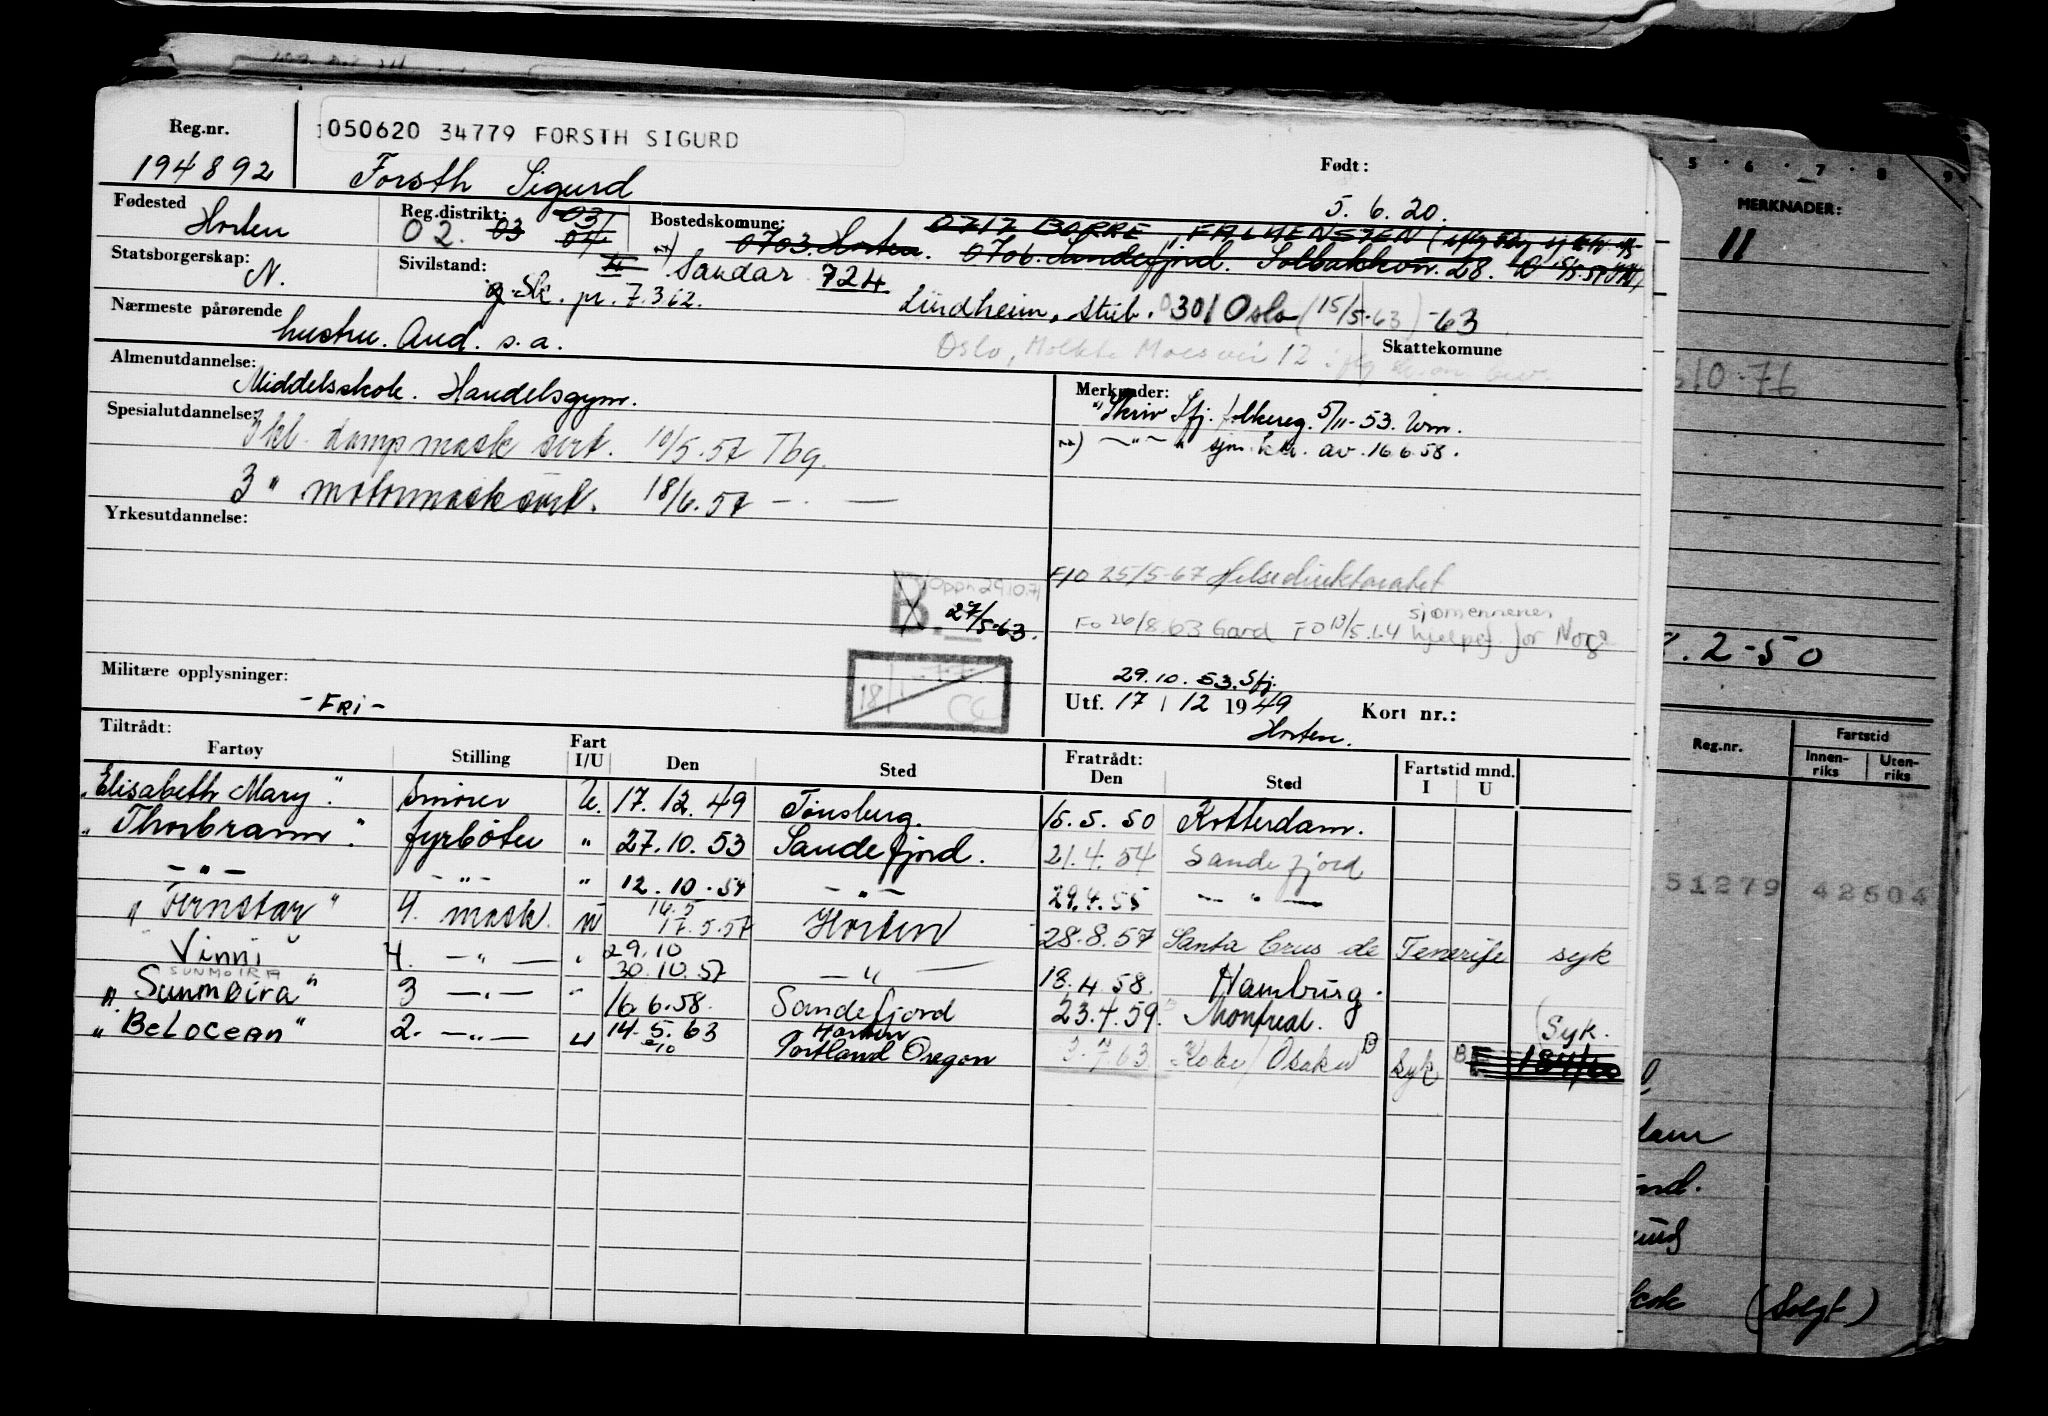 Reg.nr.
050620 34779 FORSTH SIGURD
194892
Forsth Sigurd
Født:
5. 6. 20.
Fødested
Horten
Reg.distrikt:
02. 03 03 04
Bostedskommune:
0717 BORRE, FALKENSTEN
0703 Horten. 0706 Sandefjord. Solbakkvn. 28.
Statsborgerskap:
N.
Sivilstand:
g. Sk. pr. 7.3.62.
Sandar 724
Lindheim, Stub. 0301 Oslo (15/5-63) -63
Nærmeste pårørende
hustru. Aud. s.a.
Oslo, Moltke Moes vei 12
Skattekomune
Almenutdannelse:
Middelsskok. Handelsgym.
Merknader:
Skriv Sfj. folkereg. 5/11-53.
av 16.6.58.
Spesialutdannelse:
3 kl. damp mask sert. 10/5.57 Tbg.
3 " motormask sert. 18/6.57 - . —
Yrkesutdannelse:
F/O 25/5-67 Helsedirektoratet
B. Oppn 29.10.71
27/5-63.
Fo 26/8.63 Gard FO 13/5.64 sjømennenes hjelpef. for Norge
Militære opplysninger:
- FRI -
29.10.53. Sfj.
Utf. 17 / 12 1949
Kort nr.:
Horten.
Tiltrådt:
Fartøy
Stilling
Fart I/U
Den
Sted
Fratrådt:
Den
Sted
Fartstid mnd.
I
U
"Elisabeth Mary". Smører U. 17.12.49 Tønsberg. 15.5.50 Rotterdam.
"Thorbrann". fyrbøter " 27.10.53 Sandefjord. 21.4.54 Sandefjord
— " — — " — " 12.10.54 — " — 29.4.55 — " —
"Fernstar" 4. mask. U 16.5 17.5.57 Horten 28.8.57 Santa Crus de Tenerife syk
"Vinni" 4. — " — " 29.10 30.10.57 — " — 18.4.58. Hamburg.
SUNMOIRA
"Sunmoira" 3 — " — " 16.6.58. Sandefjord 23.4.59. Montreal. Syk.
"BELOCEAN" 2. — " — U 14.5.63 Horten
Portland Oregon 3.7.63 Kobe/Osaka Syk
5 · 6 · 7 · 8 · 9
MERKNADER:
11
10-76
2-50
Reg.nr.
Fartstid
Innen-riks
Uten-riks
51279 42504
(Solgt)